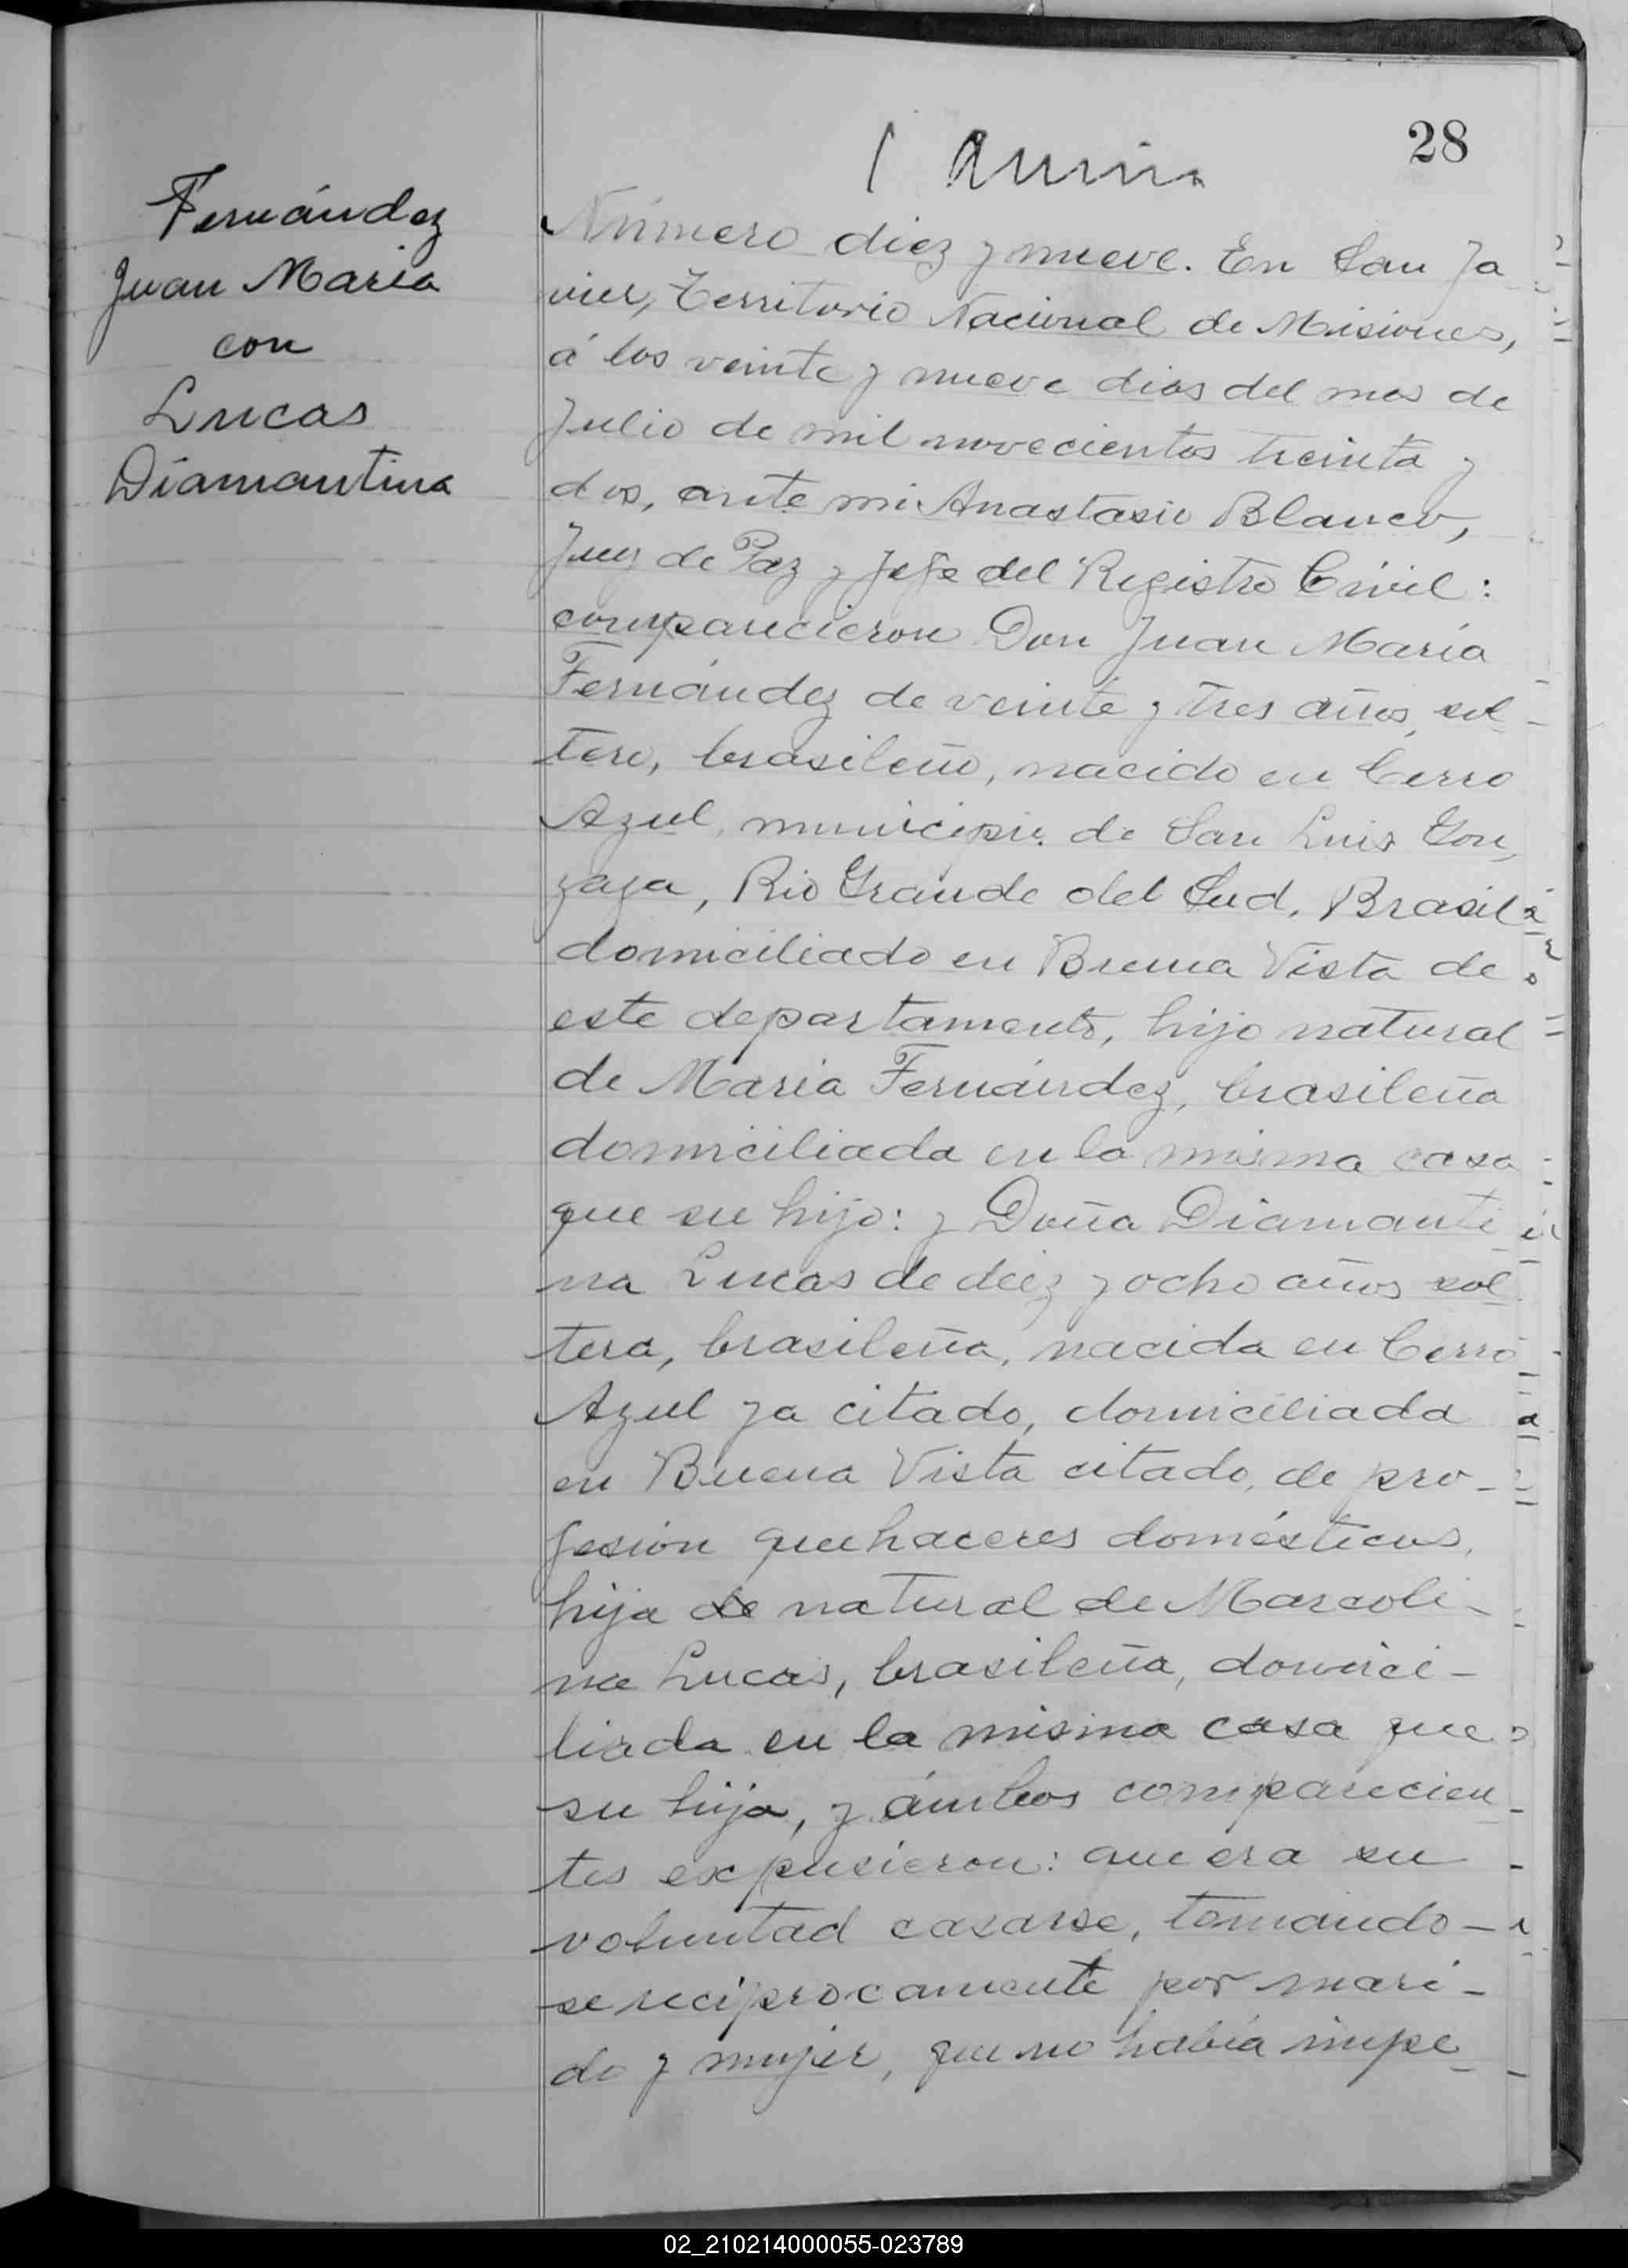 28
Fernández
Juan Maria
con
Lucas
Diamantina
Número diez y nueve. En San Ja
vier, Territorio Nacional de Misiones,
á los veinte y nueve dias del mes de
Julio de mil novecientos treinta y
dos, ante mi Anastasio Blanco,
Juez de Paz y Jefe del Registro Civil:
comparecieron Don Juan María
Fernández de veinte y tres años, sol-
tero, brasileño, nacido en Cerro
Azul, municipio de San Luis Gon
zaga, Rio Grande del Sud, Brasil
domiciliado en Buena Vista de
este departamento, hijo natural
de María Fernández, brasileña
domiciliada en la misma casa
que su hijo: y Doña Diamanti
na Lucas de diez y ocho años sol
tera, brasileña, nacida en Cerro
Azul ya citado, domiciliada
en Buena Vista citado, de pro-
fesión quehaceres domésticos,
hija de natural de Marcoli-
na Lucas, brasileña, domici-
liada en la misma casa que
su hija, y ámbos comparecien
tes expusieron: que era su
voluntad casarse, tomando-
se recíprocamente por mari-
do y mujer, que no había impe
02_210214000055-023789